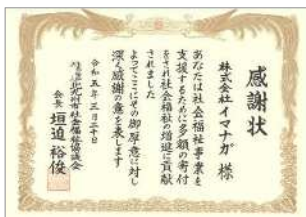 感謝状
株式会社イマナガ 様
あなたは社会福祉事業を
支援するために多額の寄付
をされ社会福祉の増進に貢献
されました
よってここにその御厚意に対し
深く感謝の意を表します
令和五年三月二十日
社会福祉法人北九州市社会福祉協議会
会長 垣迫裕俊